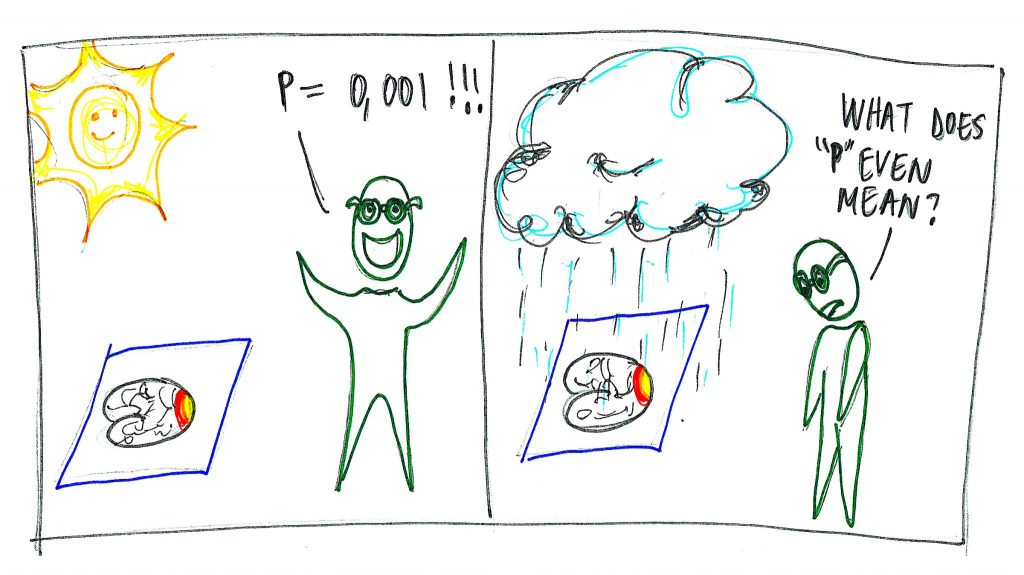 P = 0,001 !!!
WHAT DOES
"P" EVEN
MEAN?